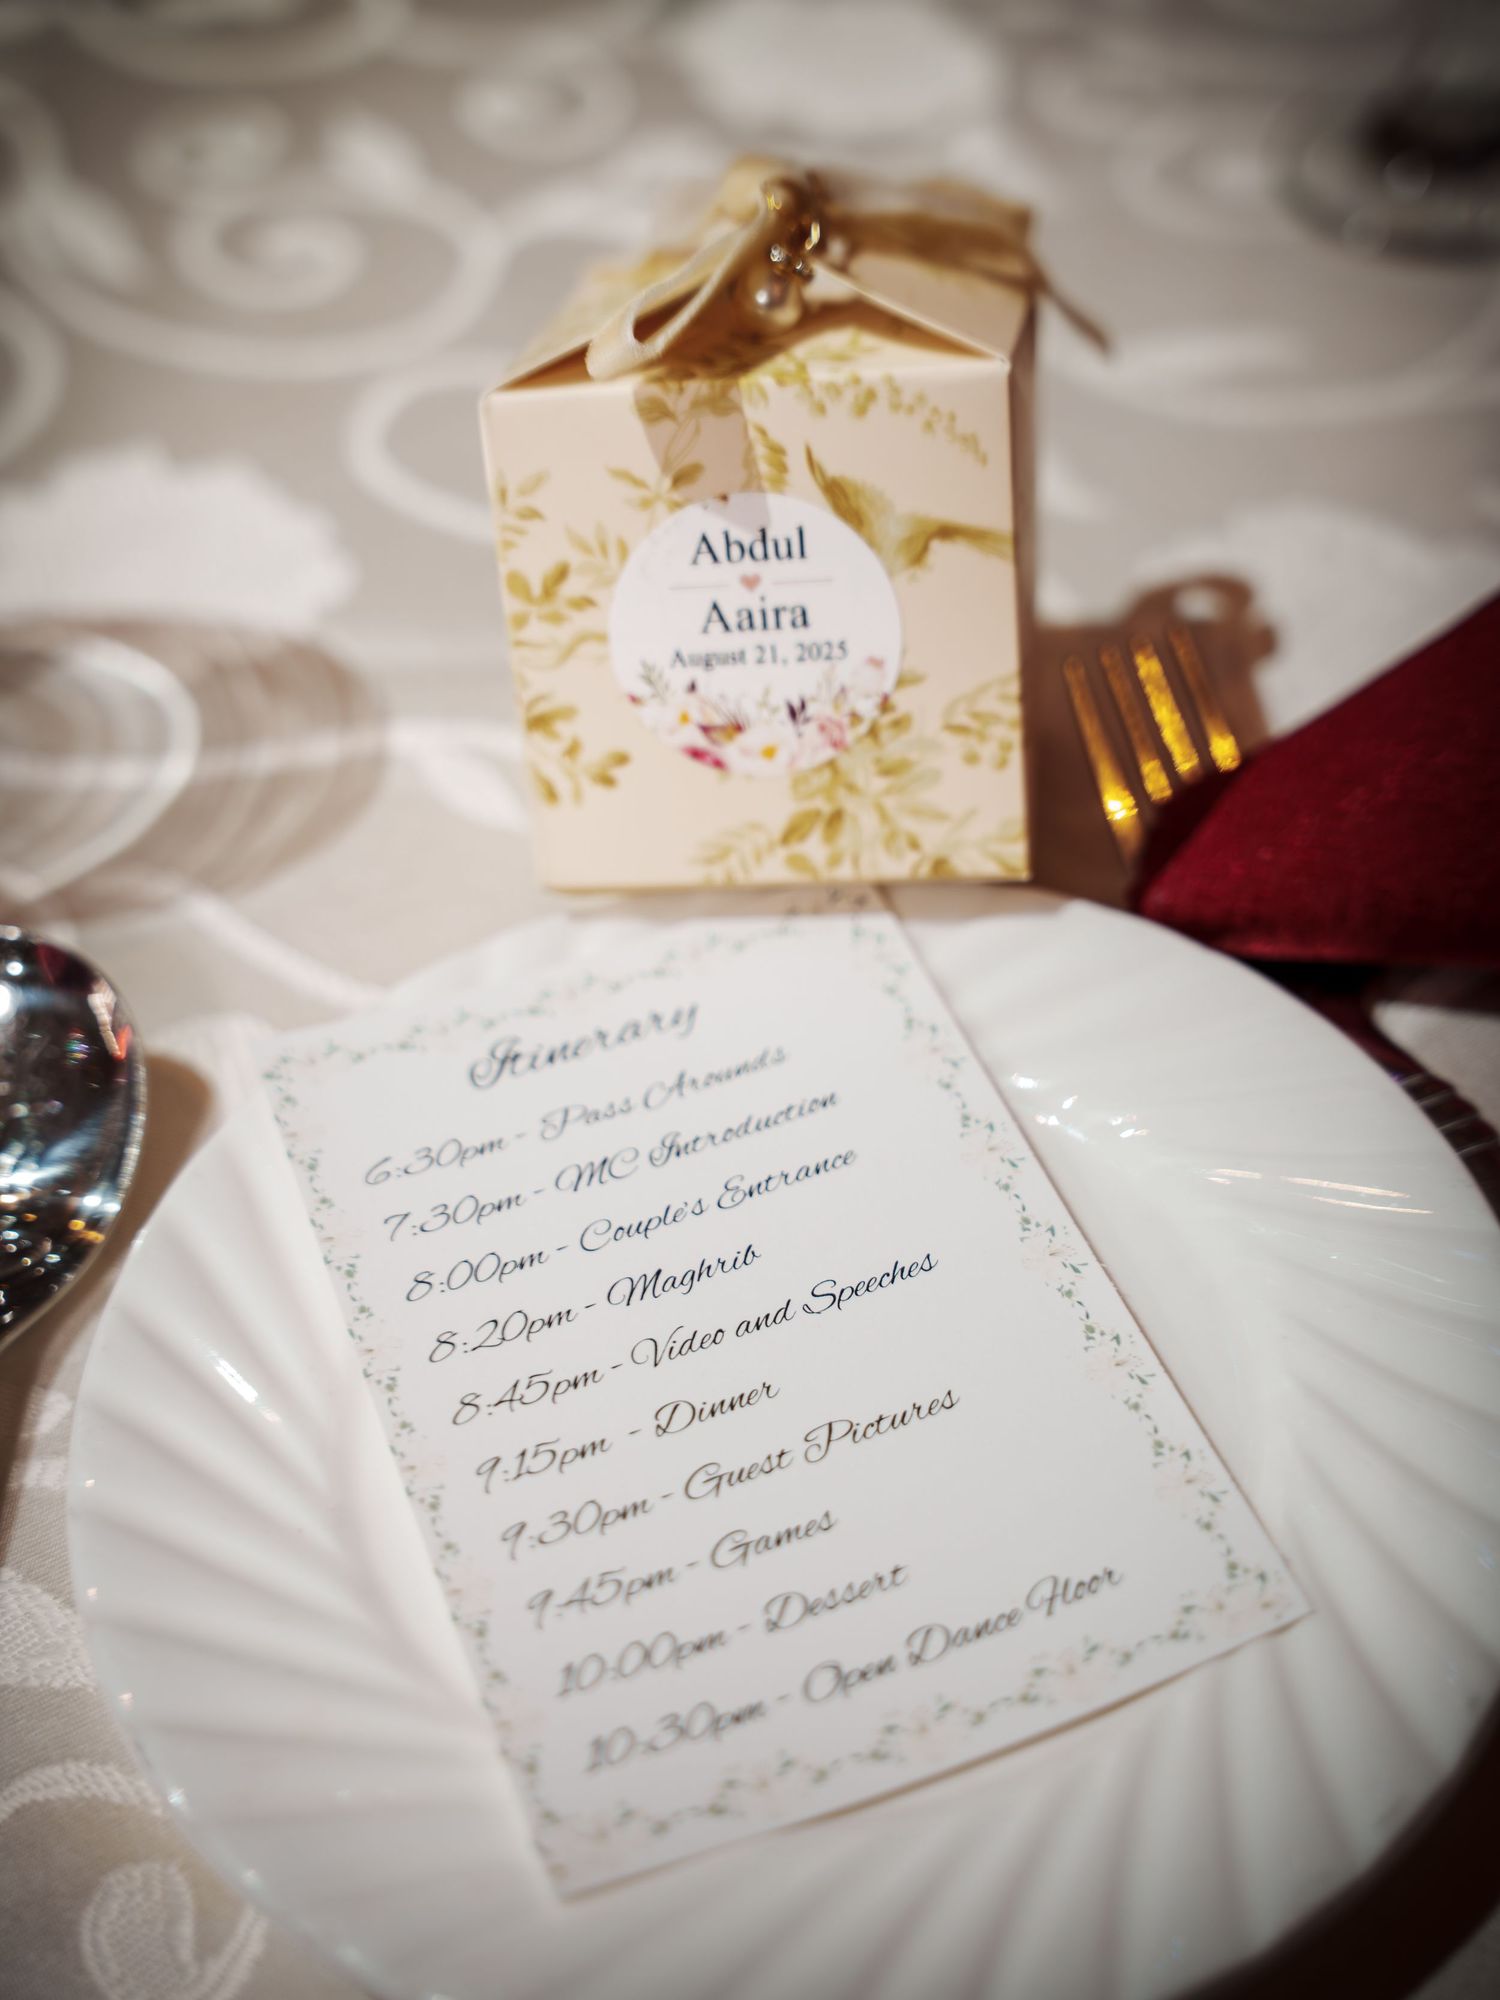 Abdul
Aaira
August 21, 2025
Itinerary
6:30pm - Pass Arounds
7:30pm - MC Introduction
8:00pm - Couple's Entrance
8:20pm - Maghrib
8:45pm - Video and Speeches
9:15pm - Dinner
9:30pm - Guest Pictures
9:45pm - Games
10:00pm - Dessert
10:30pm - Open Dance Floor